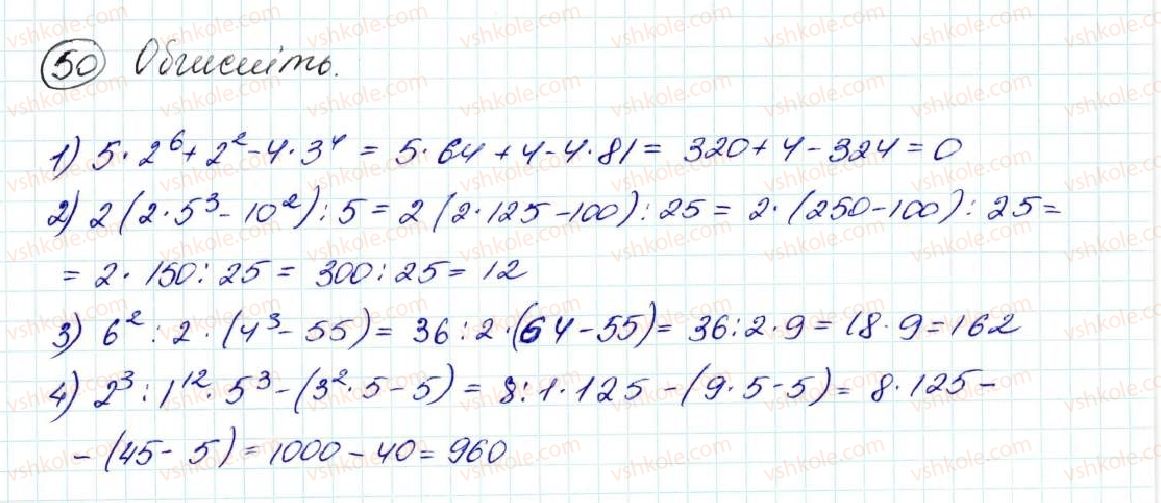 50 Обчисліть.
1) 5·2⁶+2²-4·3⁴ = 5·64+4-4·81= 320+4-324=0
2) 2(2·5³-10²):5=2(2·125-100):25=2·(250-100):25=
=2·150:25=300:25=12
3) 6²:2·(4³-55)=36:2·(64-55)=36:2·9=18·9=162
4) 2³:1¹²·5³-(3²·5-5)=8:1·125-(9·5-5)=8·125-
-(45-5)=1000-40=960